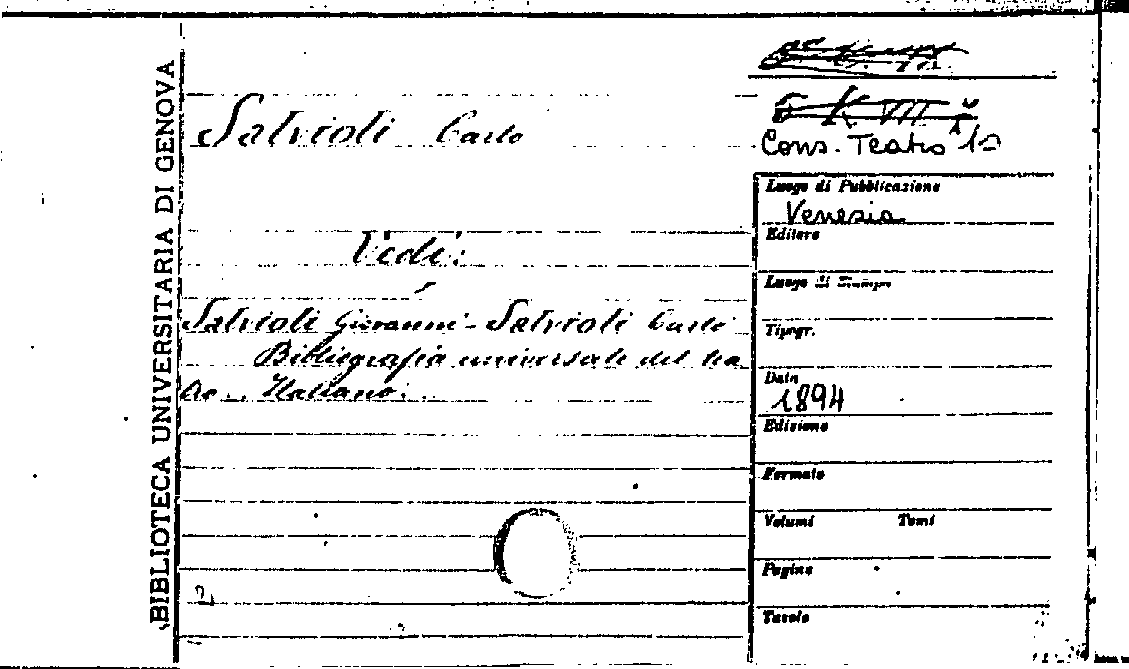 BIBLIOTECA UNIVERSITARIA DI GENOVA
Salvioli Carlo
Vedi:
Salvioli Giovanni - Salvioli Carlo
Bibliografia universale del tea
tro.. Italiano...
5 K VII
Cons. Teatro 12
Luogo di Pubblicazione
Venezia
Editore
Luogo di Stampa
Tipogr.
Data
1894
Edizione
Formato
Volumi Tomi
Pagine
Tavole